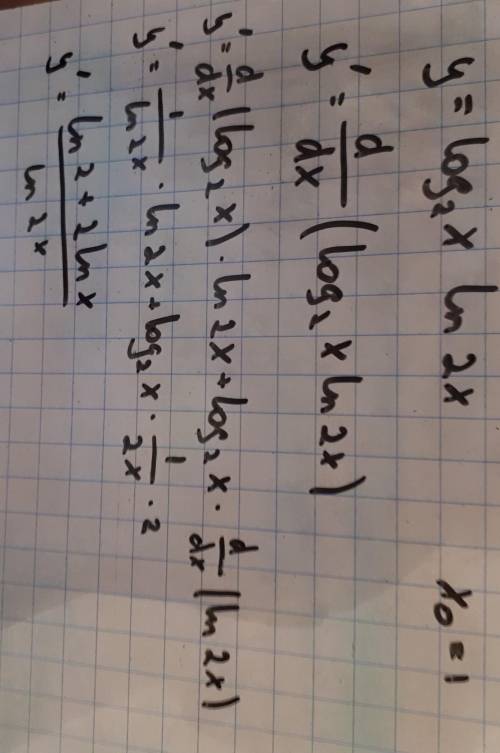 y = log₂x ln 2x x₀ = 1
y' = d/dx (log₂ x ln 2x)
y' = d/dx (log₂ x) · ln 2x + log₂ x · d/dx (ln 2x)
y' = 1/ln 2x · ln 2x + log₂ x · 1/2x · 2
y' = ln 2 + 2 ln x / ln 2x